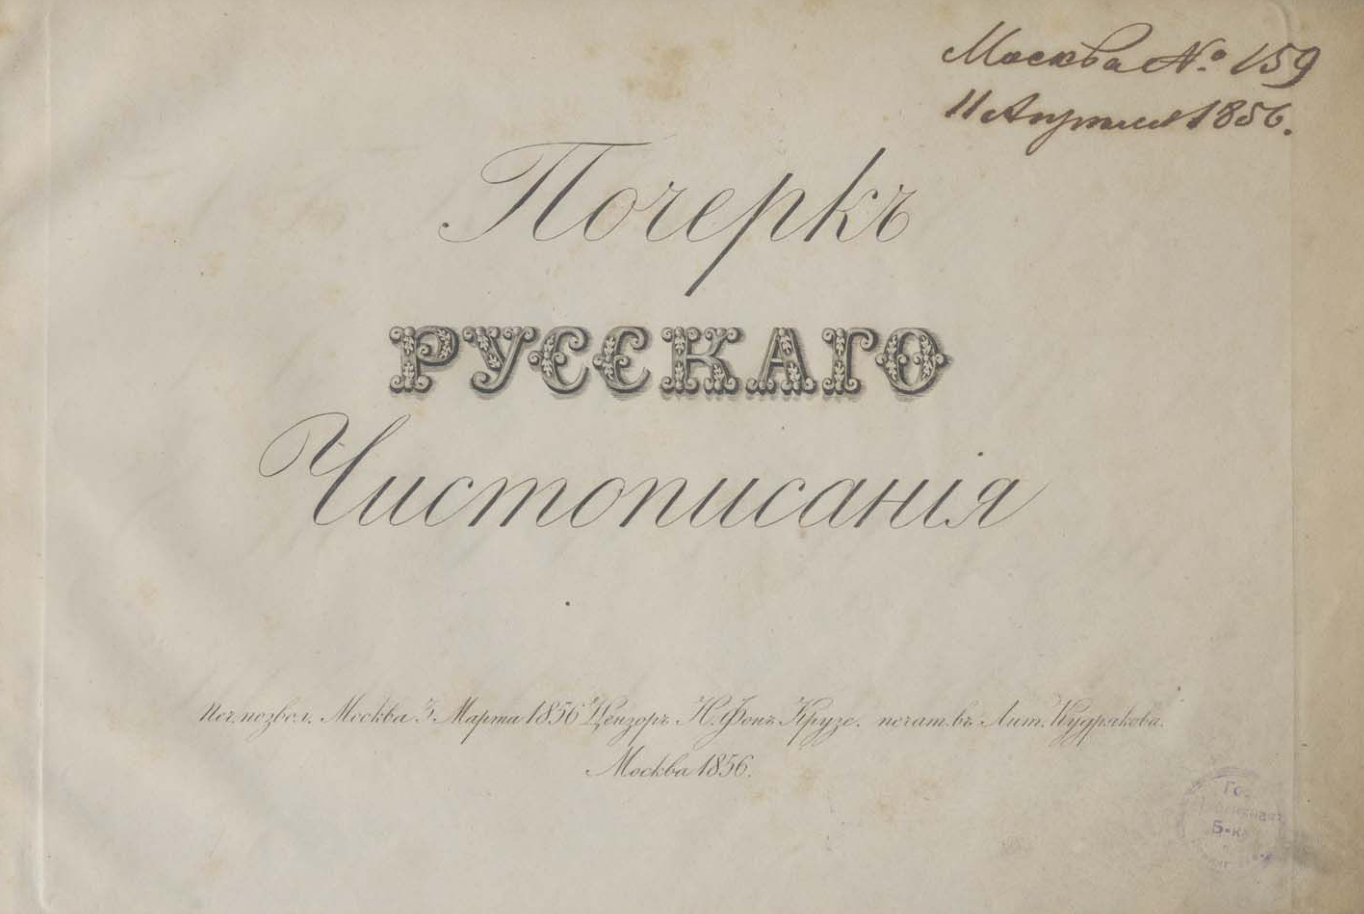 Москва № 159
11 Апреля 1856.
Почеркъ
РУССКАГО
Чистописанія
Печ. позвол. Москва 3. Марта 1856 Цензоръ Н. Фонъ Крузе. печат. въ Лит. Кудрякова.
Москва 1856.
Гос
Б-ка